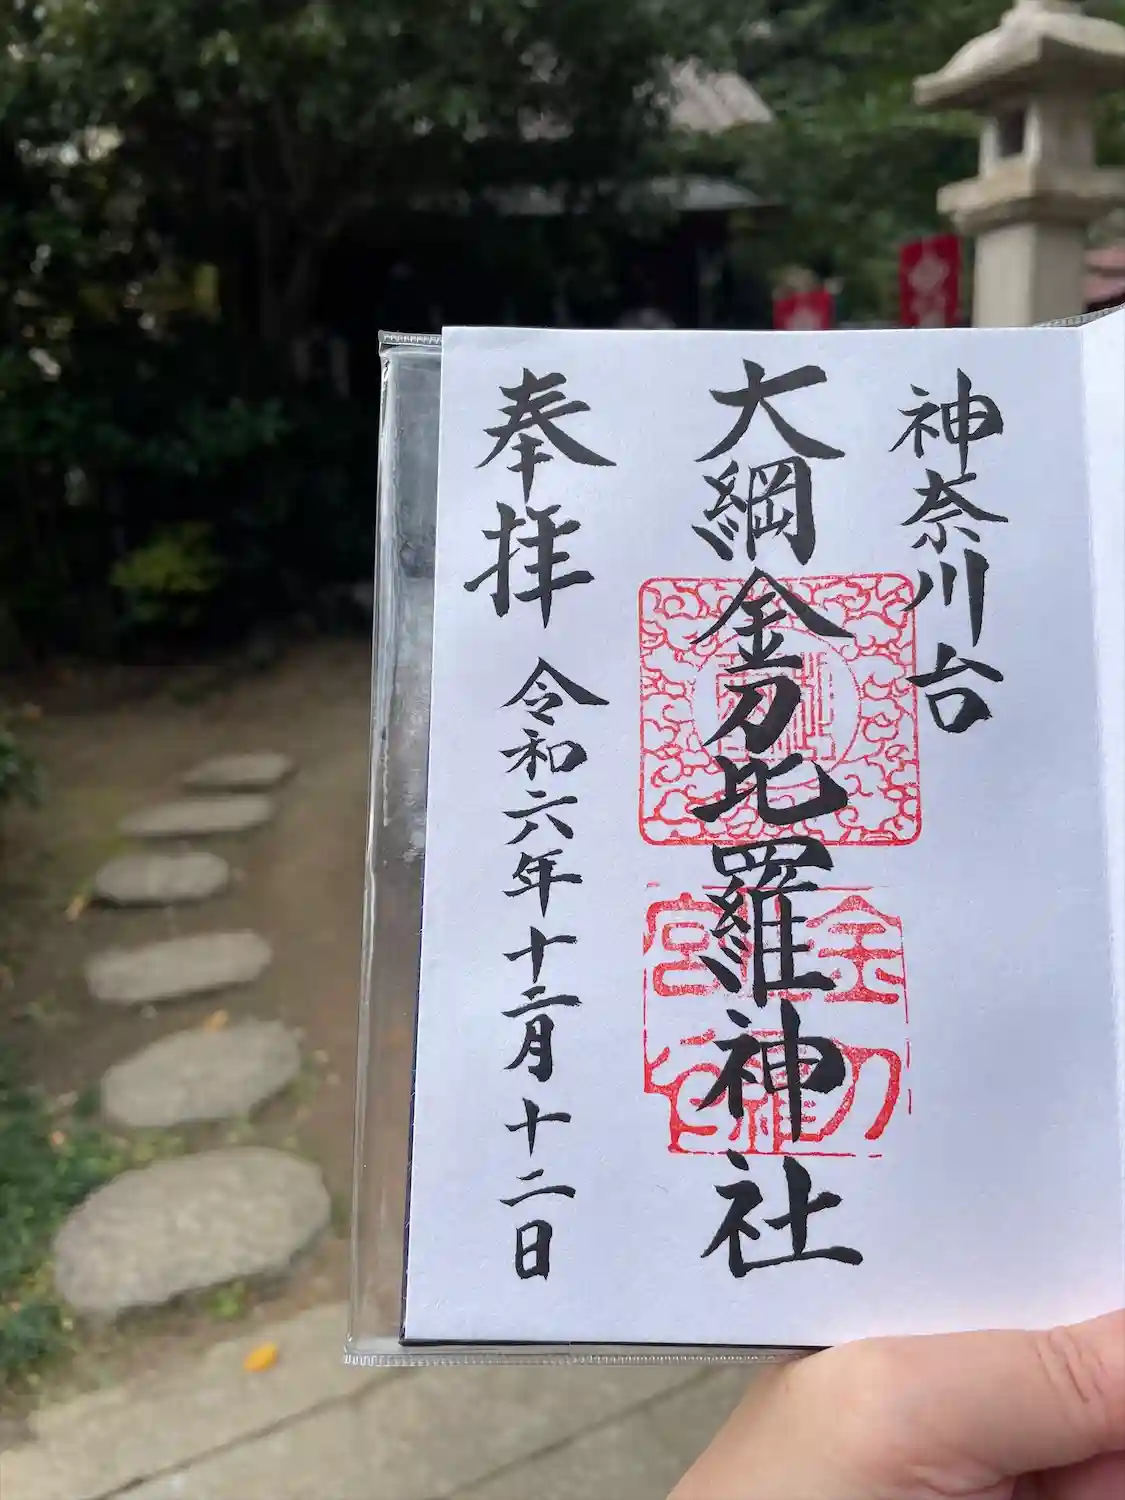 神奈川台
大綱金刀比羅神社
奉拝 令和六年十二月十二日
金刀
羅
宮